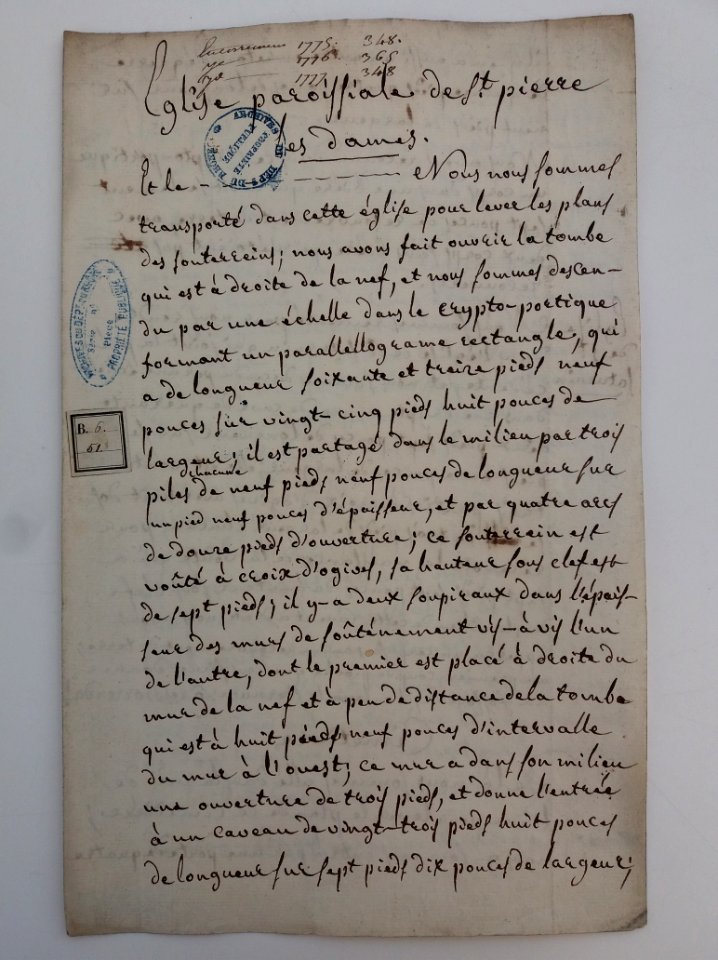 1775. 348.
1776. 365
1777. 348
Eglise paroissiale de St. pierre
les dames.
Et le - - - - - - Nous nous sommes
transporté dans cette église pour lever les plans
des souterreins; nous avons fait ouvrir la tombe
qui est à droite de la nef, et nous sommes descen-
du par une échelle dans le crypto-portique
formant un parallellograme rectangle, qui
a de longueur soixante et treize pieds neuf
pouces sur vingt-cinq pieds huit pouces de
largeur; il est partagé dans le milieu par trois
chacune
piles de neuf pieds neuf pouces de longueur sur
un pied neuf pouces d'épaisseur, et par quatre arcs
de douze pieds d'ouverture; ce souterrein est
voûté à croix d'ogives, sa hauteur sous clef est
de sept pieds; il y-a deux soupiraux dans l'épais-
seur des murs de soûténement vis-à-vis l'un
de l'autre, dont le premier est placé à droite du
mur de la nef et à peu de distance de la tombe
qui est à huit pieds neuf pouces d'intervalle
du mur à l'ouest; ce mur a dans son milieu
une ouverture de trois pieds, et donne l'entrée
à un caveau de vingt-trois pieds huit pouces
de longueur sur sept pieds dix pouces de largeur;
ARCHIVES DU DEPT. DU
PROPRIÉTÉ PUBLIQUE
ARCHIVES DU DEPT. DU
Série n°
Pièce
PROPRIÉTÉ PUBLIQUE
B. 6.
61.